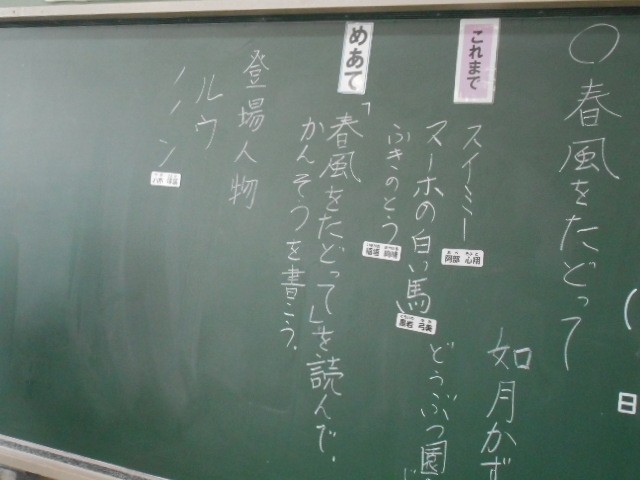 ○春風をたどって
如月かず
これまで
スイミー
阿部 心翔
スーホの白い馬
黒右 弓美
どうぶつ園
ふきのとう
めあて
「春風をたどって」を読んで、
かんそうを書こう。
登場人物
ルウ
ノノン
日